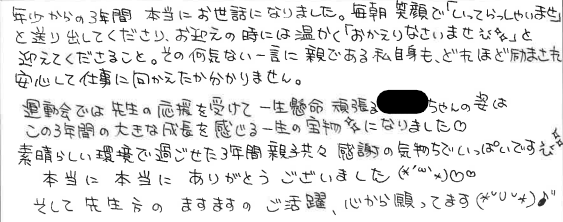 年少からの3年間 本当にお世話になりました。毎朝 笑顔で「いってらっしゃいませ」
と送り出してくださり、お迎えの時には温かく「おかえりなさいませ」と
迎えてくださること。その何気ない一言に 親である私自身も、どれほど励まされ
安心して仕事に向かえたか分かりません。
運動会では 先生の応援を受けて 一生懸命 頑張る ちゃんの姿は
この3年間の大きな成長を感じる一生の宝物になりました♡
素晴らしい環境で過ごせた3年間 親子共々 感謝の気持ちでいっぱいです
本当に 本当に ありがとう ございました (*'ω'*)♡♡
そして 先生方の ますますの ご活躍、心から願ってます(*˘︶˘*)♪